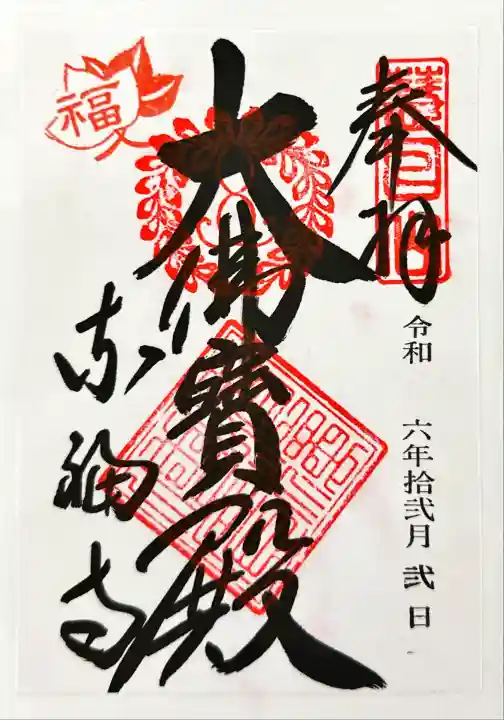 奉拝
令和 六年拾弐月弐日
大佛寳殿
東福寺
福